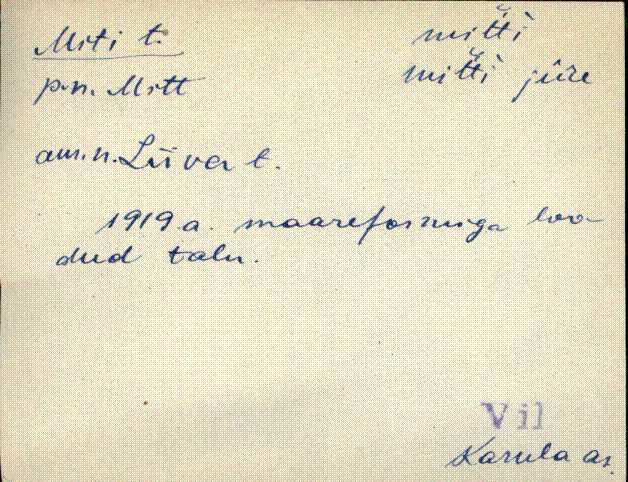 Miti t.
mit̆ti
p.n. Mitt
mit̆ti jüre
am.n. Liiva t.
1919 a. maareformiga loo-
dud talu.
Vil
Karula as.